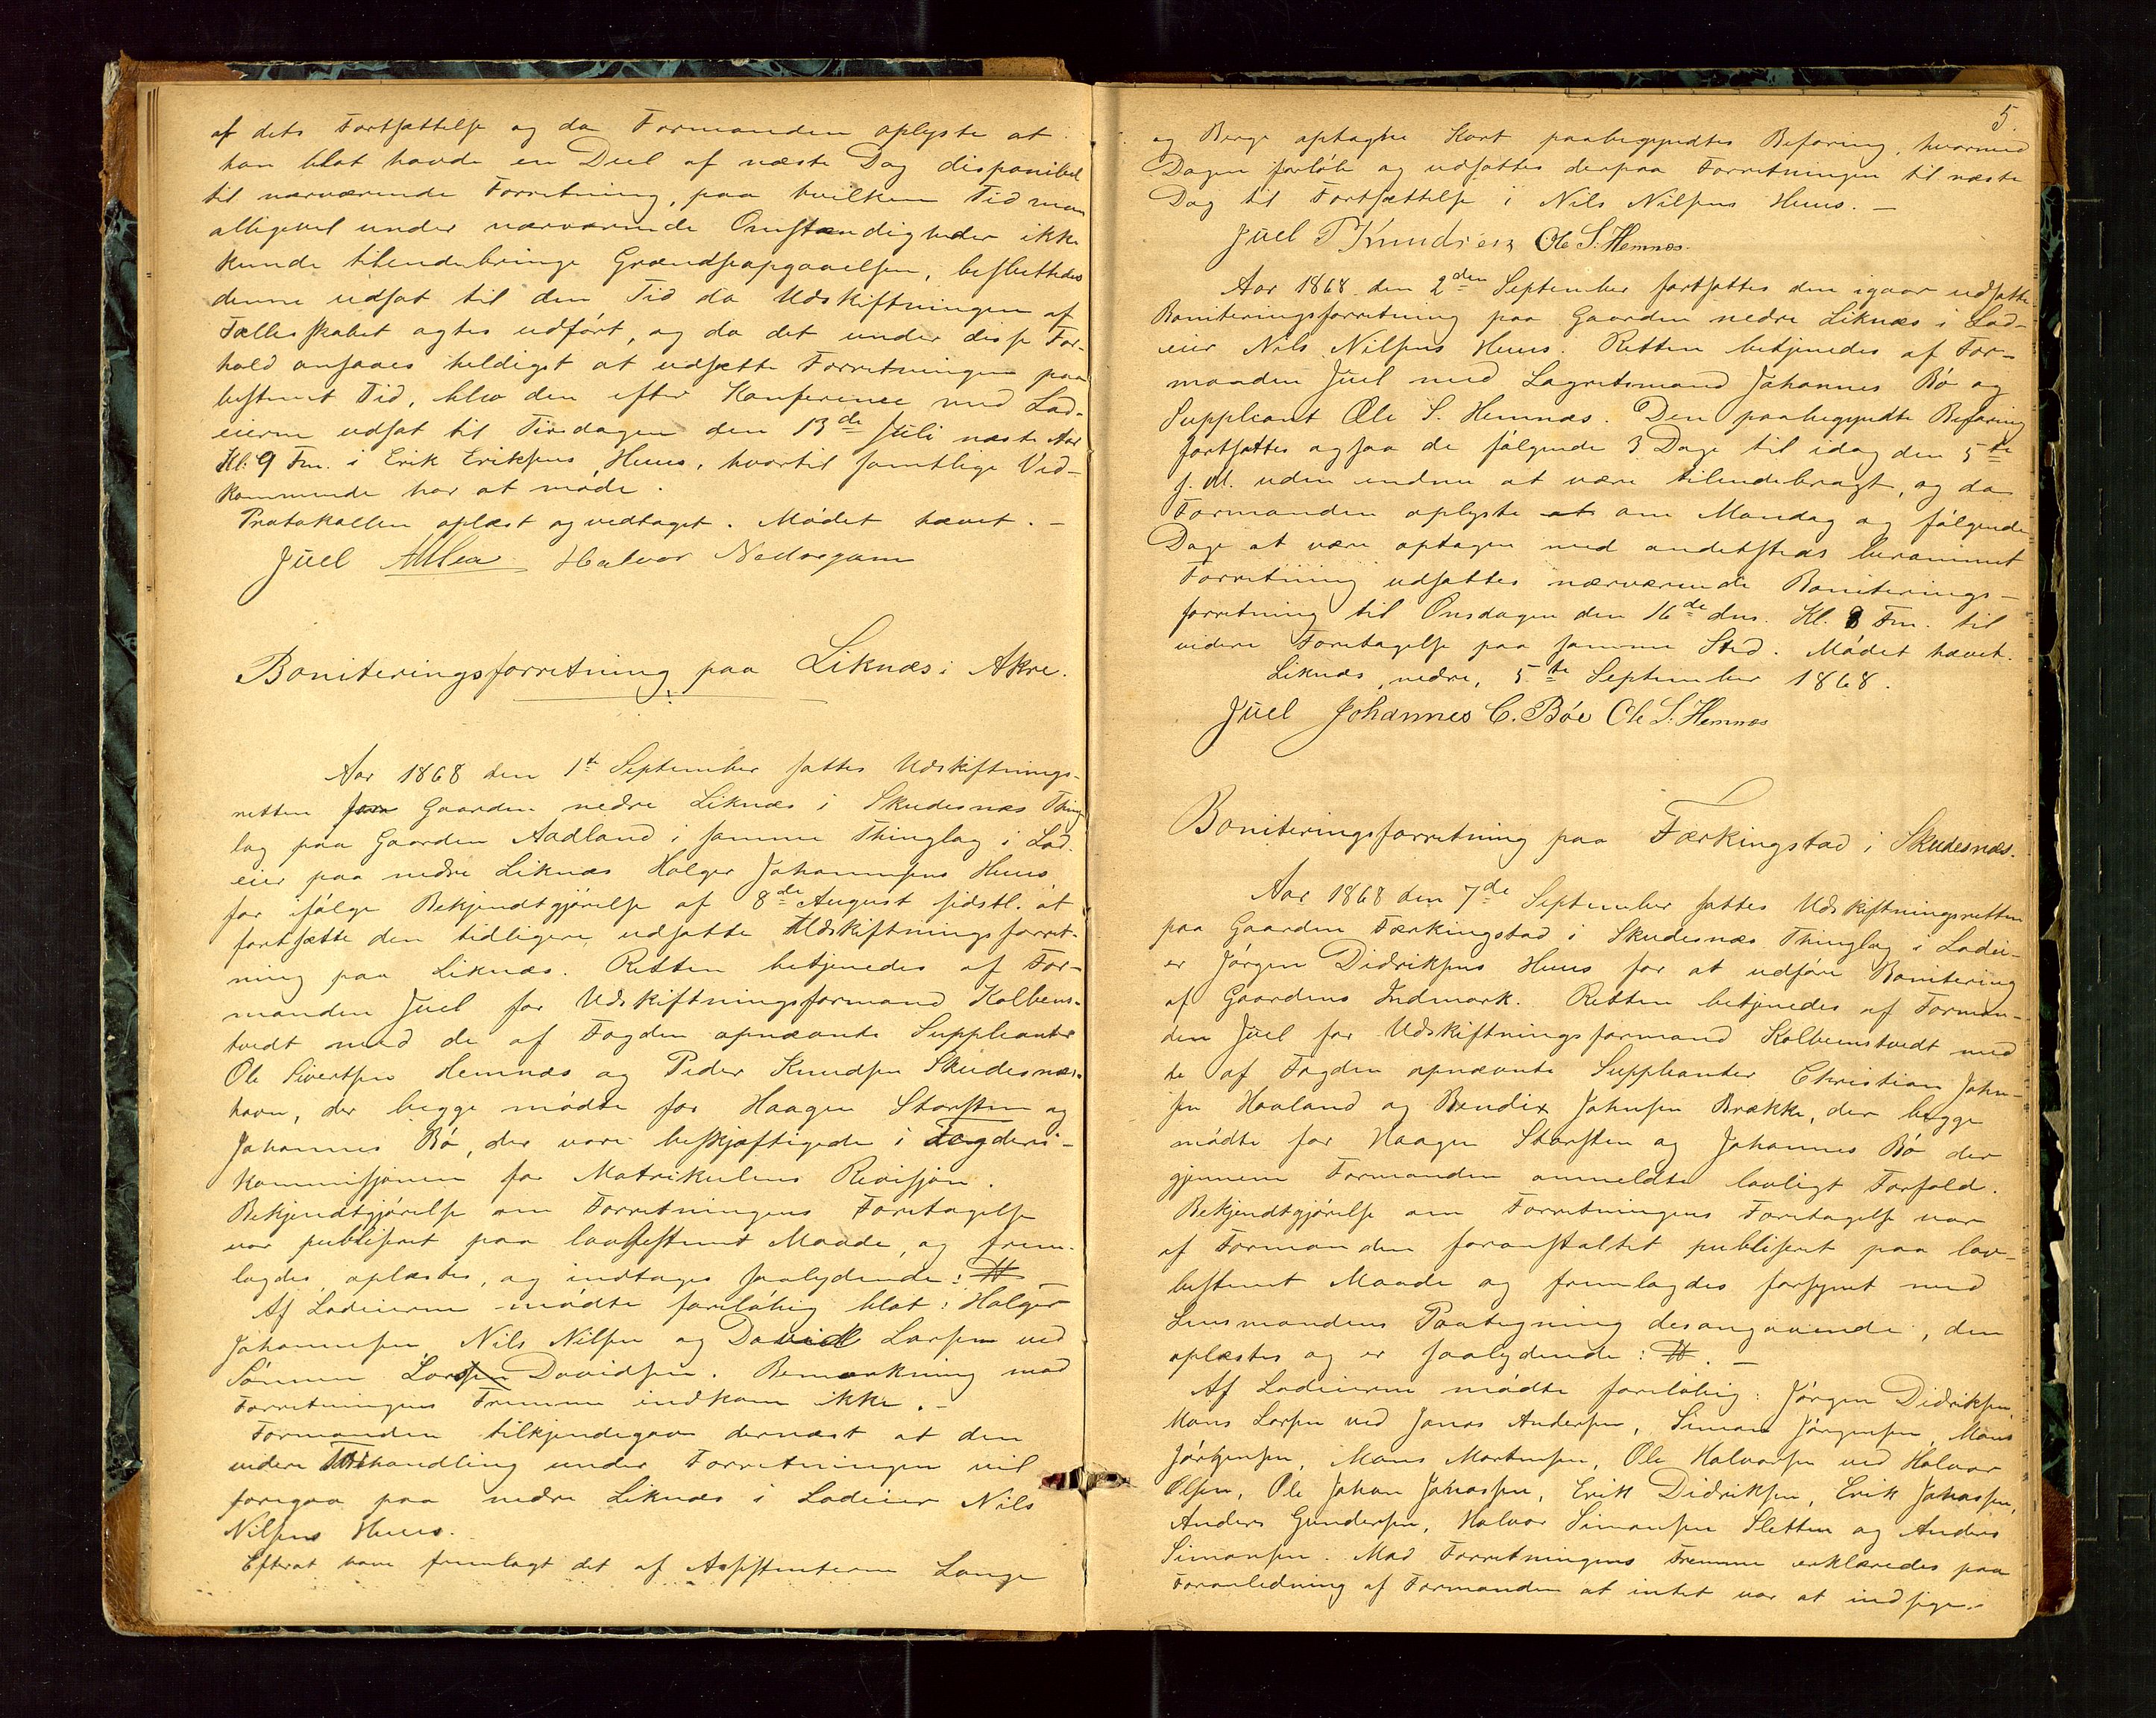 af dets Fortsættelse og da Formanden oplyste at
han blot havde en Deel af næste Dag disponibel
til nærværende Forretning, paa hvilken Tid man
alligevel under nærværende Omstændigheder ikke
kunde tilendebringe Grændseopgaaelsen, besluttedes
denne udsat til den Tid da Udskiftningen af
Fællesskabet agtes udført, og da det under disse For-
hold ansaaes heldigst at udsætte Forretningen paa
bestemt Tid, blev den efter Konference med Lod-
eierne udsat til Tirsdagen den 13de Juli næste Aar
Kl. 9 Fm. i Erik Eriksens Huus, hvortil samtlige Ved-
kommende har at møde.
Protokollen oplæst og vedtaget. Mødet hævet. -
Juel Halvor
Boniteringsforretning paa Liknæs i Akre.
Aar 1868 den 1st September sattes Udskiftnings-
retten Gaarden nedre Liknæs i Skudesnæs Thing
lag paa Gaarden Aadland i samme Thinglag i Lod-
eier paa nedre Liknæs Holger Johannesens Huus
for ifølge Bekjendtgjørelse af 8de August sidstl. at
fortsætte den tidligere udsatte Udskiftningsforret-
ning paa Liknæs. Retten betjenedes af For-
manden Juel for Udskiftningsformand Kolbens-
tvedt med de af Fogden opnævnte Suppleanter
Ole Sivertsen Hemnæs og Peder Knudsen Skudesnæs-
havn, der begge mødte for Haagen Storsten og
Johannes Bø, der vare beskjæftigede i Fogderi-
kommissjonen for Matrikulens Revisjon.
Bekjendtgjørelse om Forretningens Foretagelse
var publiseret paa lovbestemt Maade, og frem-
lagdes, oplæstes, og indtages saalydende: #
Af Lodeierne mødte foreløbig blot: Holger
Johannesen, Nils Nilsen og David Larsen ved
Sønnen Lars Davidsen. Bemærkning mod
Forretningens Fremme indkom ikke. -
Formanden tilkjendegav dernæst at den
videre Behandling under Forretningen vil
foregaa paa nedre Liknæs i Lodeier Nils
Nilsens Huus.
Efterat have fremlagt det af Assistenterne Lange
5.
og Berge optagne Kart paabegyndtes Befaring, hvormed
Dagen forløb og udsattes derpaa Forretningen til næste
Dag til Fortsættelse i Nils Nilsens Huus. -
Juel P Knudsen Ole S. Hemnæs.
Aar 1868 den 2den September fortsattes den igaar udsatte
Boniteringsforretning paa Gaarden nedre Liknæs i Lod-
eier Nils Nilsens Huus. Retten betjenedes af For-
manden Juel med Lagretsmand Johannes Bø og
Suppleant Ole S. Hemnæs. Den paabegyndte Befaring
fortsattes ogsaa de følgende 3 Dage til idag den 5te
f. M. uden endnu at være tilendebragt, og da
Formanden oplyste at om Mandag og følgende
Dage at være optagen med andetsteds berammet
Forretning udsattes nærværende Boniterings-
forretning til Onsdagen den 16de dns. Kl. 8 Fm. til
videre Foretagelse paa samme Sted. Mødet hævet.
Liknæs, nedre, 5te September 1868.
Juel Johannes C. Bøe Ole S. Hemnæs
Boniteringsforretning paa Færkingstad i Skudesnæs.
Aar 1868 den 7de September sattes Udskiftningsretten
paa Gaarden Færkingstad i Skudesnæs Thinglag i Lodei-
er Jørgen Didriksens Huus for at udføre Bonitering
af Gaardens Indmark. Retten betjenedes af Forman-
den Juel for Udskiftningsformand Kolbenstvedt med
de af Fogden opnævnte Suppleanter Christian John-
sen Haaland og Bendix Johnsen Brække, der begge
mødte for Haagen Storsten og Johannes Bø der
gjennem Formanden anmeldte lovligt Forfald.
Bekjendtgjørelse om Forretningens Foretagelse var
af Formanden foranstaltet publiseret paa lov-
bestemt Maade og fremlagdes forsynet med
Lensmandens Paategning desangaaende, den
oplæstes og er saalydende: #. -
Af Lodeierne mødte foreløbig: Jørgen Didriksen,
Mons Larsen ved Jonas Andersen, Simon Jørgensen, Mons
Jørgensen, Mons Mortensen, Ole Halvorsen ved Halvor
Olsen, Ole Johan Johassen, Erik Didriksen, Erik Johassen,
Anders Gundersen, Halvor Simonsen Sletten og Anders
Simonsen. Mod Forretningens Fremme erklæredes paa
Foranledning af Formanden at intet var at indsige. -